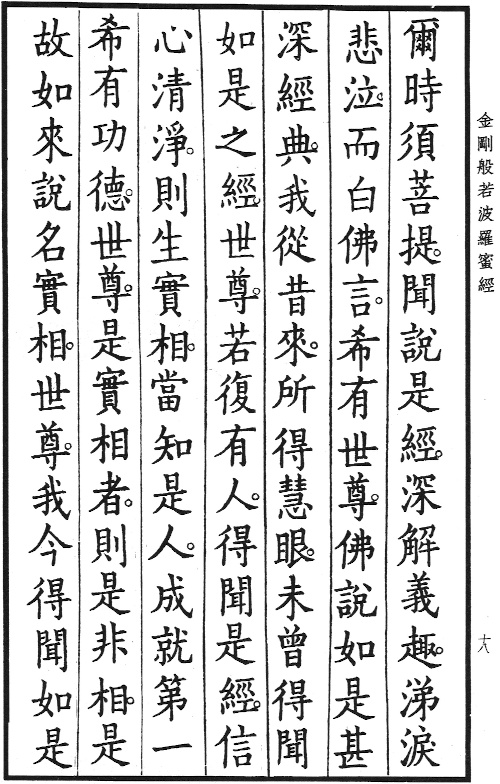 金剛般若波羅蜜經
十八
爾時須菩提。聞說是經。深解義趣。涕淚
悲泣。而白佛言。希有世尊。佛說如是甚
深經典。我從昔來。所得慧眼。未曾得聞
如是之經。世尊。若復有人。得聞是經。信
心清淨。則生實相。當知是人。成就第一
希有功德。世尊。是實相者。則是非相。是
故如來說名實相。世尊。我今得聞如是